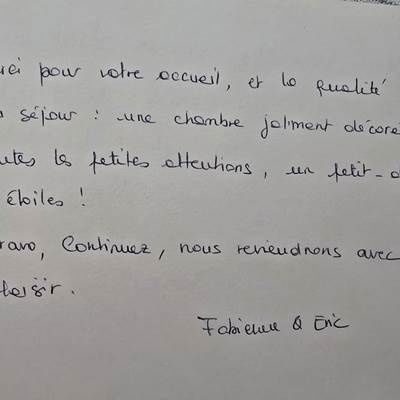 ci pour votre accueil, et la qualité
séjour : une chambre joliment décoré
utes les petites attentions, un petit-d
étoiles !
ravo, Continuez, nous reviendrons avec
plaisir.
Fabienne & Eric